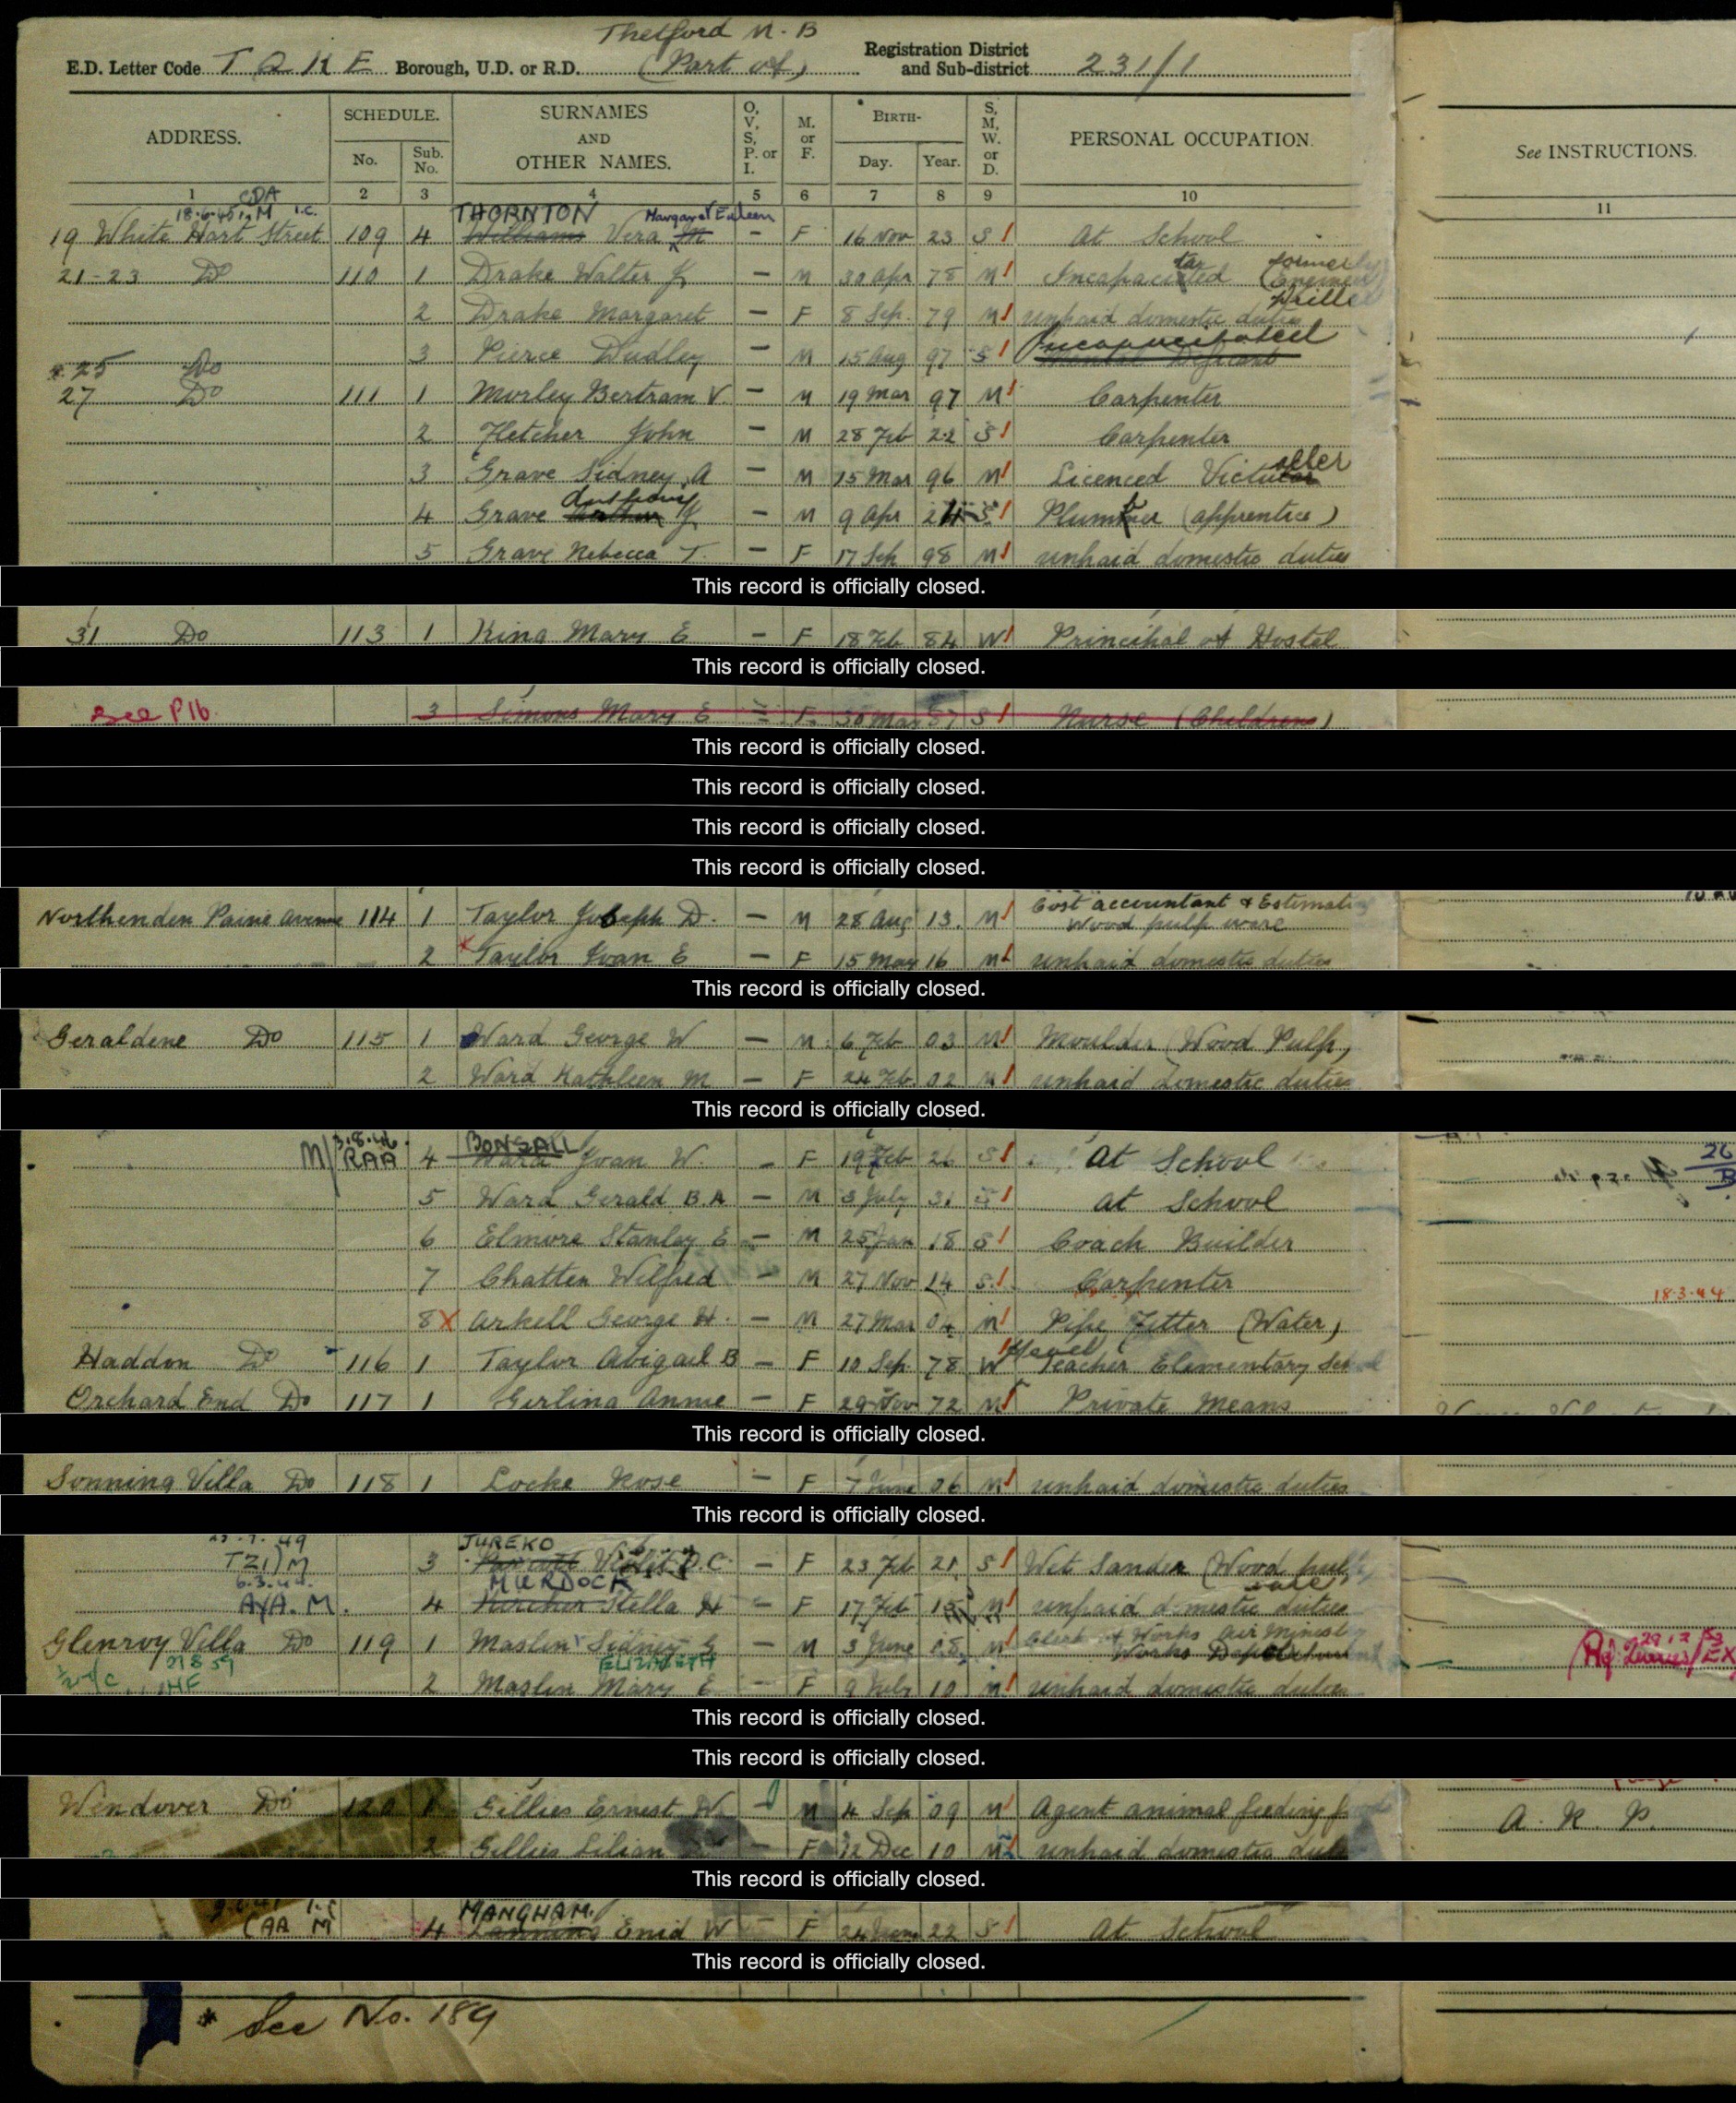 Thetford M.B
E.D. Letter Code T Q K E Borough, U.D. or R.D. (Part of) Registration District and Sub-district 231/1
ADDRESS. SCHEDULE. No. Sub. No. SURNAMES AND OTHER NAMES. O, V, S, P. or I. M. or F. BIRTH- Day. Year. S, M, W. or D. PERSONAL OCCUPATION. See INSTRUCTIONS.
1 2 3 4 5 6 7 8 9 10 11
CDA
18.6.45 M I.C. THORNTON Margaret Eileen
19 White Hart Street 109 4 Williams Vera M — F 16 Nov 23 S At School
21-23 Do 110 1 Drake Walter J — M 30 Apr 78 M Incapacitated (formerly
2 Drake Margaret — F 8 Sep. 79 M unpaid domestic duties
3 Pierce Dudley — M 15 Aug 97 S Incapacitated
25 Do
27 Do 111 1 Morley Bertram V. — M 19 Mar 97 M Carpenter
2 Fletcher John — M 28 Feb 22 S Carpenter
3 Grave Sidney A — M 15 Mar 96 M Licenced Victualler
4 Grave Anthony J — M 9 Apr 24 S Plumber (apprentice)
5 Grave Rebecca T. — F 17 Sep 98 M unpaid domestic duties
This record is officially closed.
31 Do 113 1 King Mary E — F 18 Feb 84 W Principal of Hostel
This record is officially closed.
See P16 3 Simons Mary E — F 30 Mar S Nurse (Childrens)
This record is officially closed.
This record is officially closed.
This record is officially closed.
This record is officially closed.
Northenden Paine Avenue 114 1 Taylor Joseph D. — M 28 Aug 13. M Cost accountant & Estimating
Wood pulp ware
2 Taylor Joan E — F 15 May 16 M unpaid domestic duties
This record is officially closed.
Geraldene Do 115 1 Ward George W — M 6 Feb 03 M Moulder (Wood Pulp)
2 Ward Kathleen M — F 24 Feb 02 M unpaid domestic duties
This record is officially closed.
M/ 3.8.46. RAA 4 BONSALL Ward Joan W. — F 19 Feb 26 S At School
5 Ward Gerald B.A — M 3 July 31 S At School
6 Elmore Stanley E — M 25 Jan 18 S Coach Builder
7 Chatten Wilfred — M 27 Nov 14 S Carpenter
18-3-44
8 X Arkell George H. — M 27 Mar 04 M Pipe Fitter (Water)
Haddon Do 116 1 Taylor Abigail B — F 10 Sep. 78 W Teacher Elementary School
Orchard End Do 117 1 Girling Annie — F 29 Nov 72 M Private Means
This record is officially closed.
Sonning Villa Do 118 1 Locke Rose — F 7 June 06 M unpaid domestic duties
This record is officially closed.
49 JUREKO
TZI) M 3 Violet D.C. — F 23 Feb 21 S Wet Sander (Wood pulp
6.3.44. MURDOCK ware)
AYA. M. 4 Stella H — F 17 Feb 15 M unpaid domestic duties
Glenroy Villa Do 119 1 Maslin Sidney G — M 3 June 08 M Clerk of Works Air Ministry
Works Department
21 8 59 ELIZABETH
2 Maslin Mary E — F 9 July 10 M unpaid domestic duties
This record is officially closed.
This record is officially closed.
Wendover Do 120 1 Gillies Ernest W — M 4 Sep 09 M Agent animal feeding A. R. P.
2 Gillies Lilian — F 12 Dec 10 M unpaid domestic duties
This record is officially closed.
MANGHAM.
(AA M 4 Enid W — F 24 22 S At School
This record is officially closed.
* See No. 189